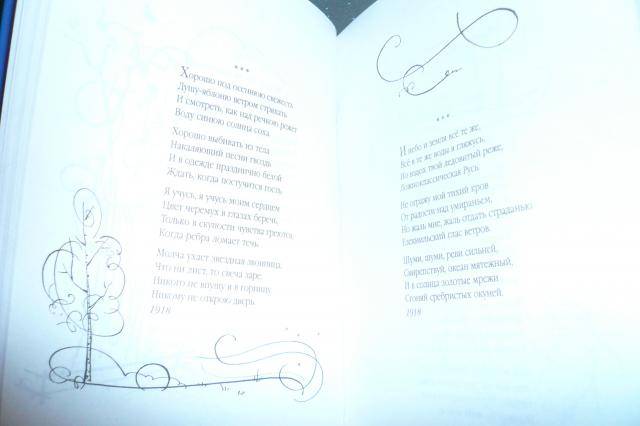 ***
Хорошо под осеннюю свежесть
Душу-яблоню ветром стряхать
И смотреть, как над речкою режет
Воду синюю солнца соха.
Хорошо выбивать из тела
Накаляющий песни гвоздь
И в одежде празднично белой
Ждать, когда постучится гость.
Я учусь, я учусь моим сердцем
Цвет черемух в глазах беречь,
Только в скупости чувства греются,
Когда ребра ломает течь.
Молча ухает звездная звонница,
Что ни лист, то свеча заре.
Никого не впущу я в горницу,
Никому не открою дверь.
1918
***
И небо и земля всё те же,
Всё в те же воды я гляжусь,
Но вздох твой ледовитый реже,
Ложноклассическая Русь.
Не огражу мой тихий кров
От радости над умираньем,
Но жаль мне, жаль отдать страданью
Езекиильский глас ветров.
Шуми, шуми, реви сильней,
Свирепствуй, океан мятежный,
И в солнца золотые мрежи
Сгоняй сребристых окуней.
1918